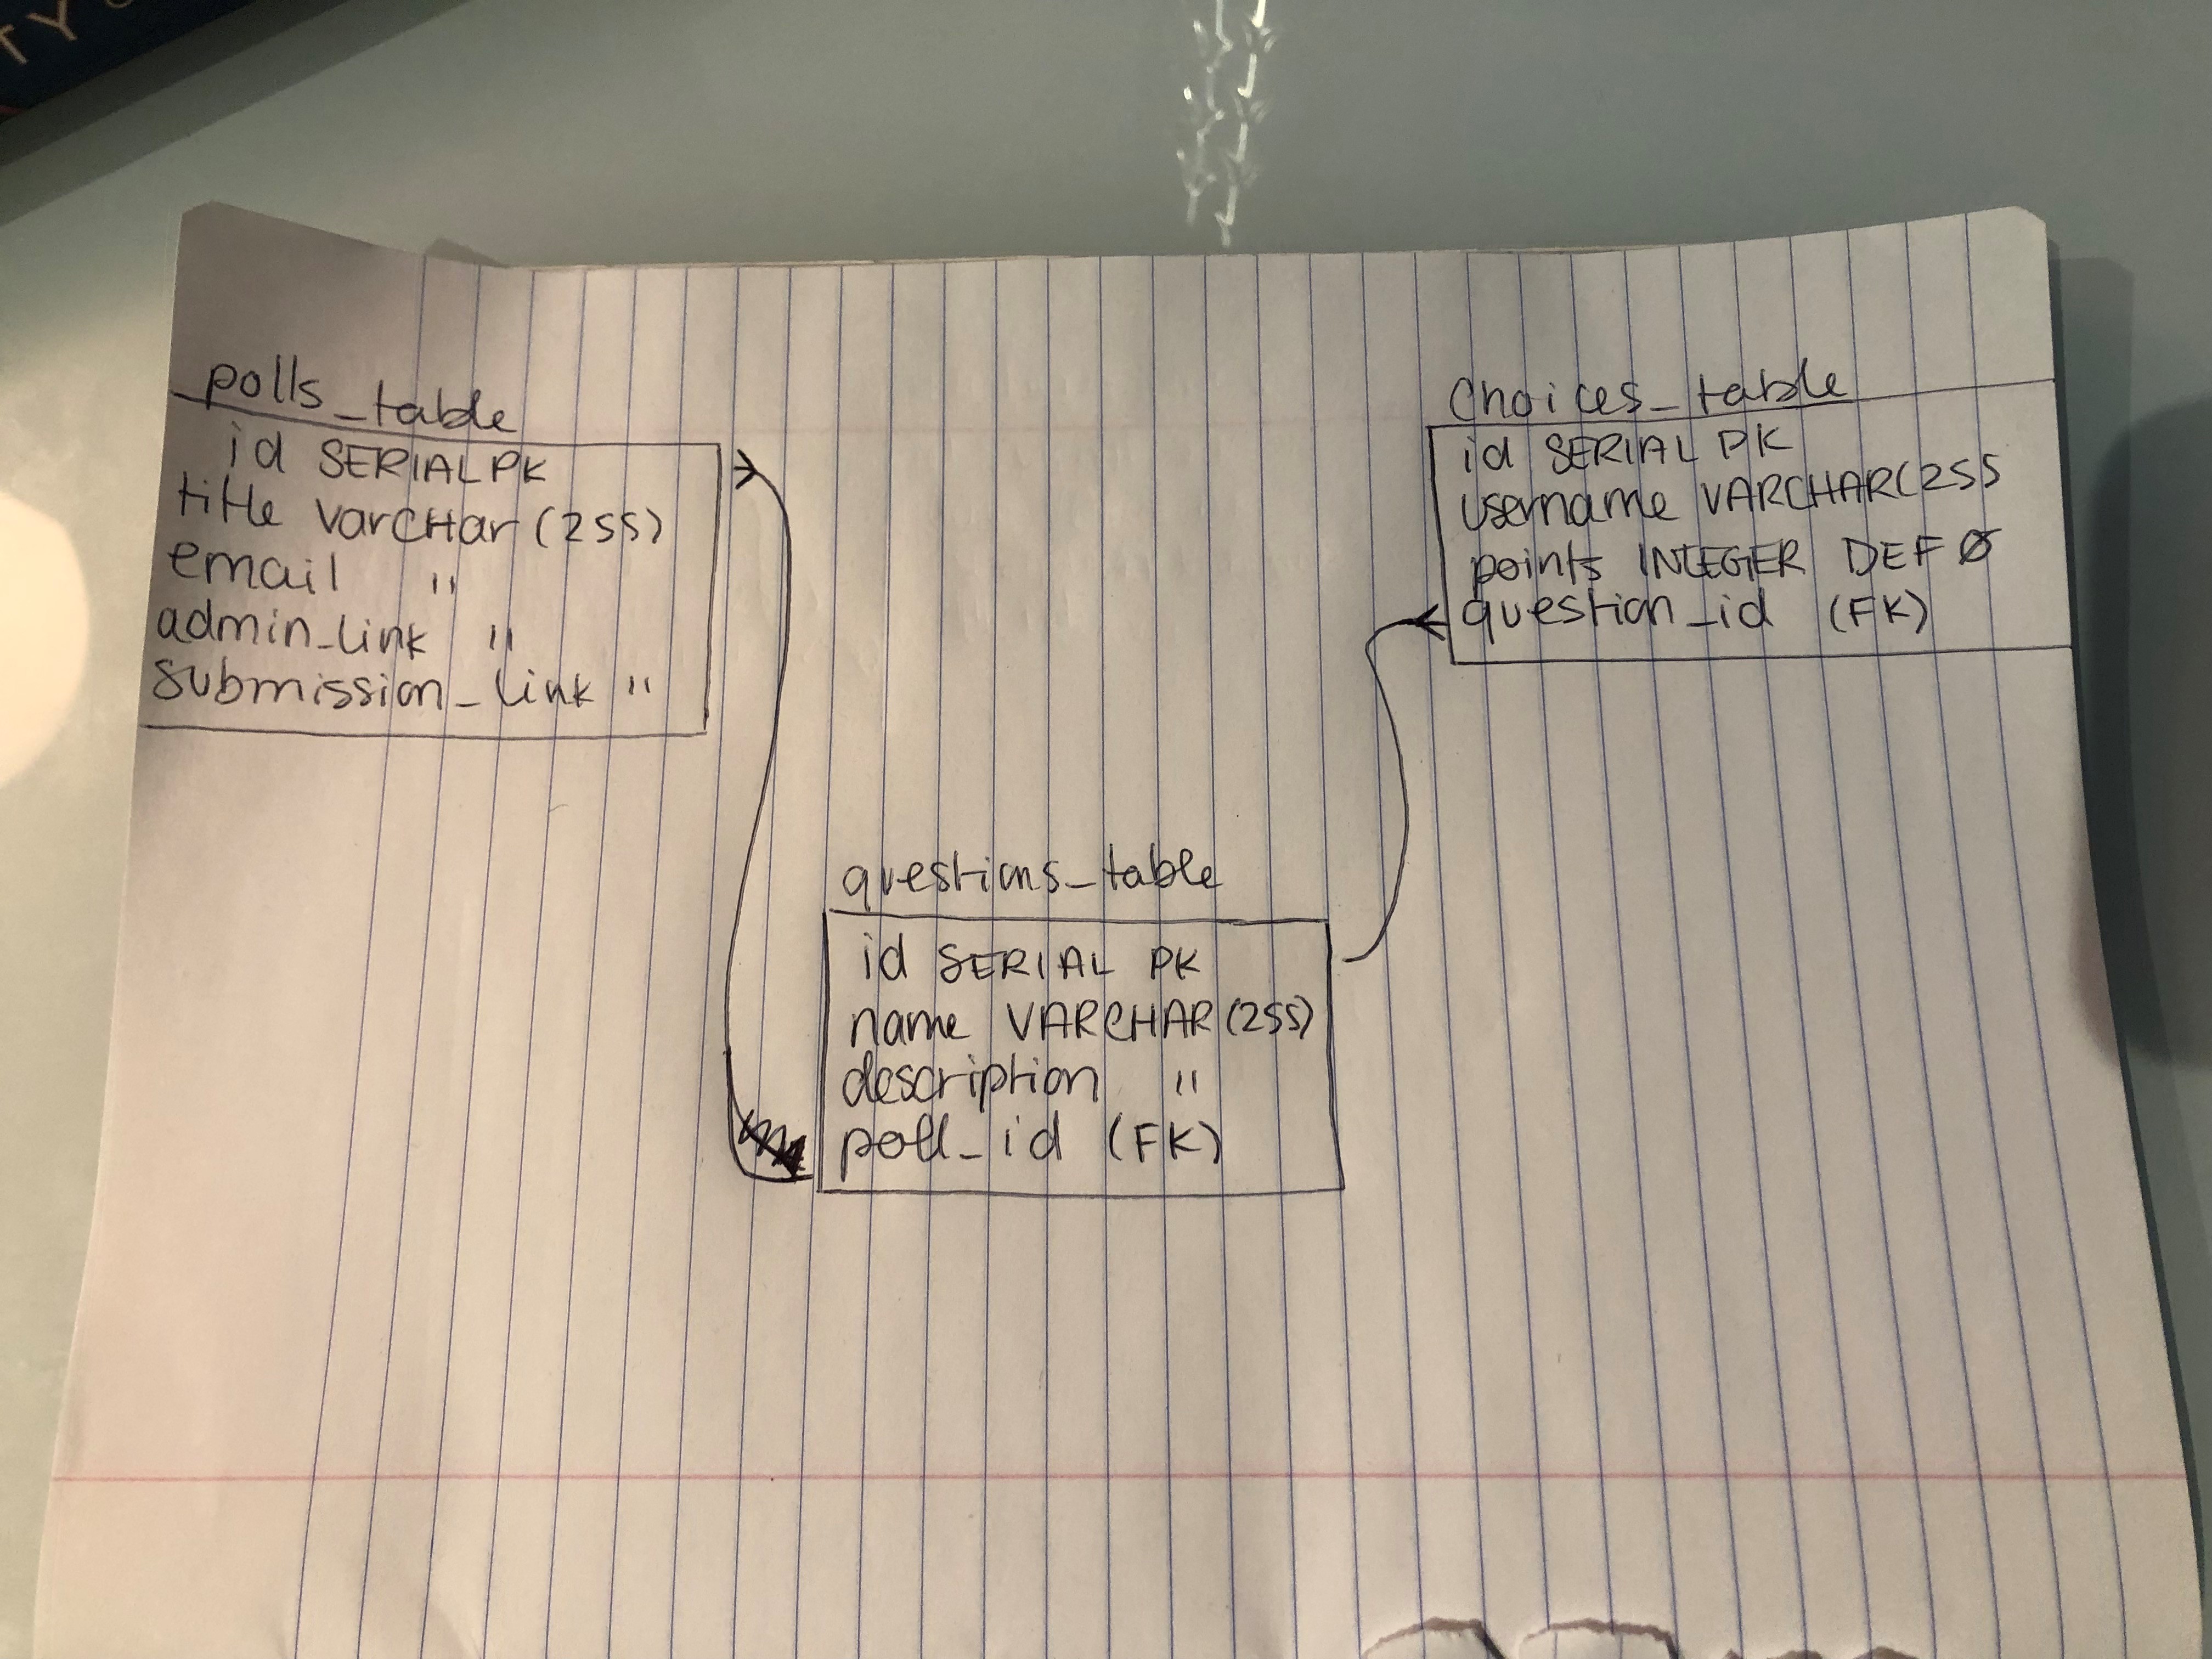 TY
polls_table
id SERIAL PK
title VarCHar (255)
email "
admin_link "
submission_link "
Choices_table
id SERIAL PK
username VARCHAR(255
points INTEGER DEF Ø
question_id (FK)
questions_table
id SERIAL PK
name VARCHAR (255)
description "
poll_id (FK)